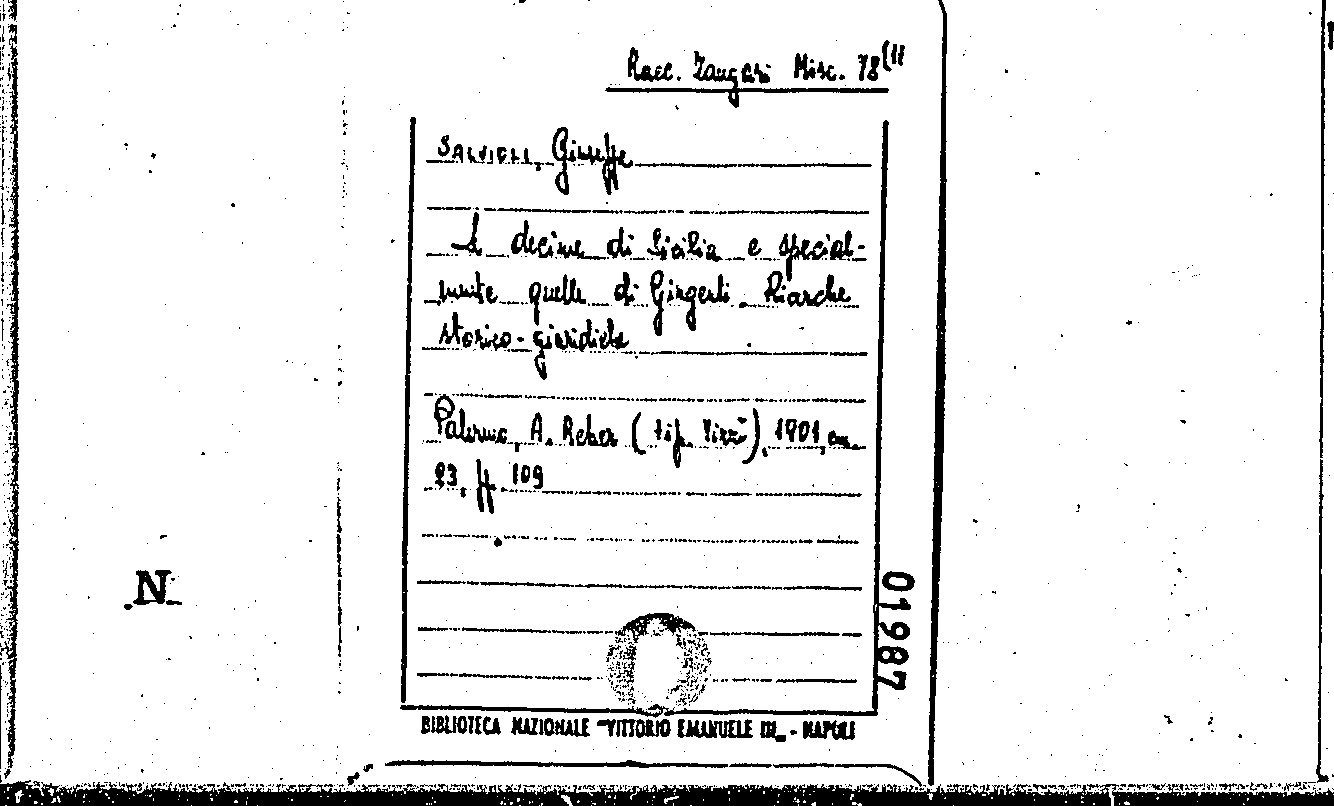 Racc. Zangari Misc. 78(11
SALVIOLI, Giuseppe
Le decime di Sicilia e special-
mente quelle di Girgenti. Ricerche
storico-giuridiche
Palermo, A. Reber (tip. Virzì), 1901, cm.
23, pp. 109
N
01987
BIBLIOTECA NAZIONALE "VITTORIO EMANUELE III„ - NAPOLI